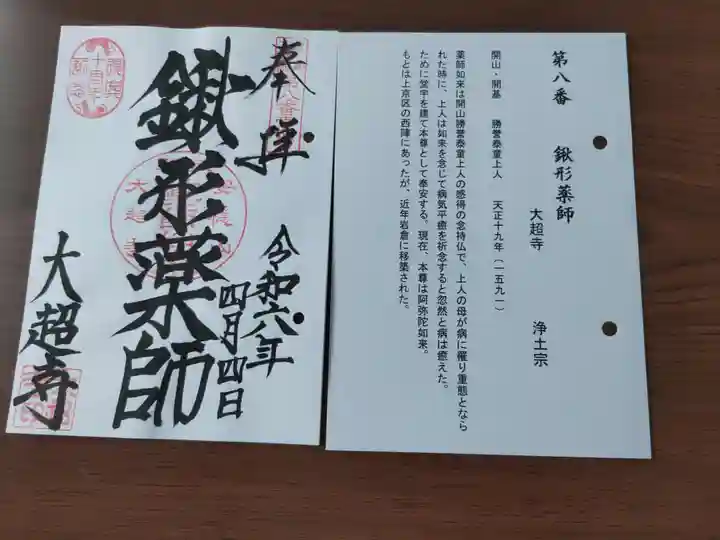 奉拝
鍬形薬師
令和六年
四月四日
大超寺
第八番 鍬形薬師
大超寺 浄土宗
開山・開基 勝誉泰童上人 天正十九年(一五九一)
薬師如来は開山勝誉泰童上人の感得の念持仏で、上人の母が病に罹り重態となら
れた時に、上人は如来を念じて病気平癒を祈念すると忽然と病は癒えた。
ために堂宇を建て本尊として奉安する。現在、本尊は阿弥陀如来。
もとは上京区の西陣にあったが、近年岩倉に移築された。